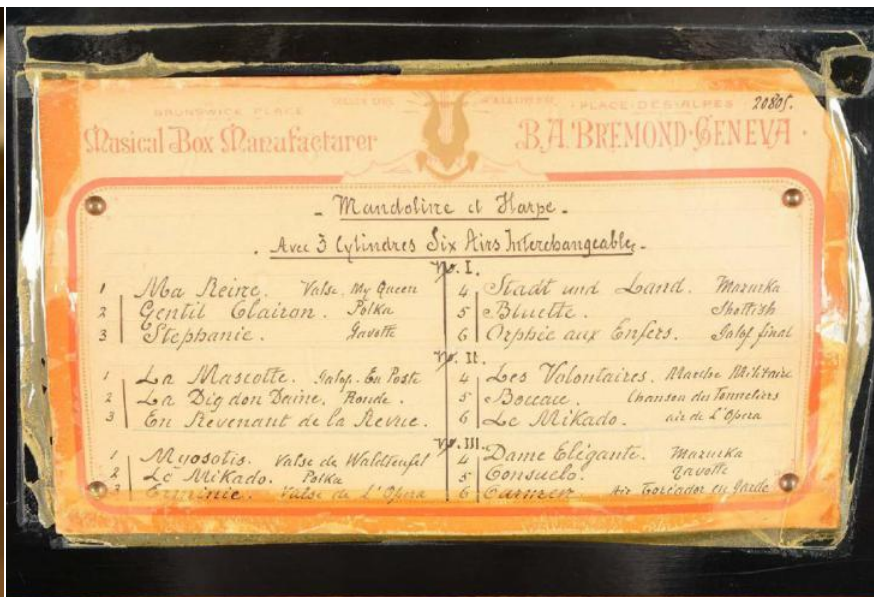 BRUNSWICK PLACE PLACE-DES-ALPES 20805.
Musical Box Manufacturer B.A. BREMOND·GENEVA·
- Mandoline et Harpe -
- Avec 3 Cylindres Six Airs Interchangeables -
No. I.
1 Ma Reine. Valse. My Queen
2 Gentil Clairon. Polka
3 Stephanie. Gavotte
4 Stadt und Land. Mazurka
5 Bluette. Shottish
6 Orphée aux Enfers. Galop final
No. II.
1 La Mascotte. Galop. En Poste
2 La Dig don Daine. Ronde.
3 En Revenant de la Revue.
4 Les Volontaires. Marche Militaire
5 Boccace. Chanson des Tonneliers
6 Le Mikado. air de L'Opera
No. III.
1 Myosotis. Valse de Waldteufel
2 Le Mikado. Polka
3 Erminie. Valse de L'Opera
4 Dame Elégante. Mazurka
5 Consuelo. Gavotte
6 Carmen. Air Toréador en Garde